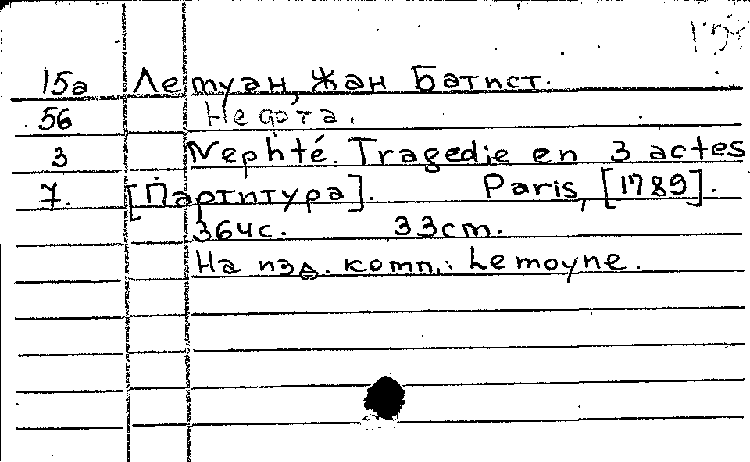 15а Лемуан, Жан Батист.
5б Нефта.
3 Nephté. Tragedie en 3 actes
7. [Партитура]. Paris, [1789].
364с. 33cm.
На изд. комп.: Lemoyne.